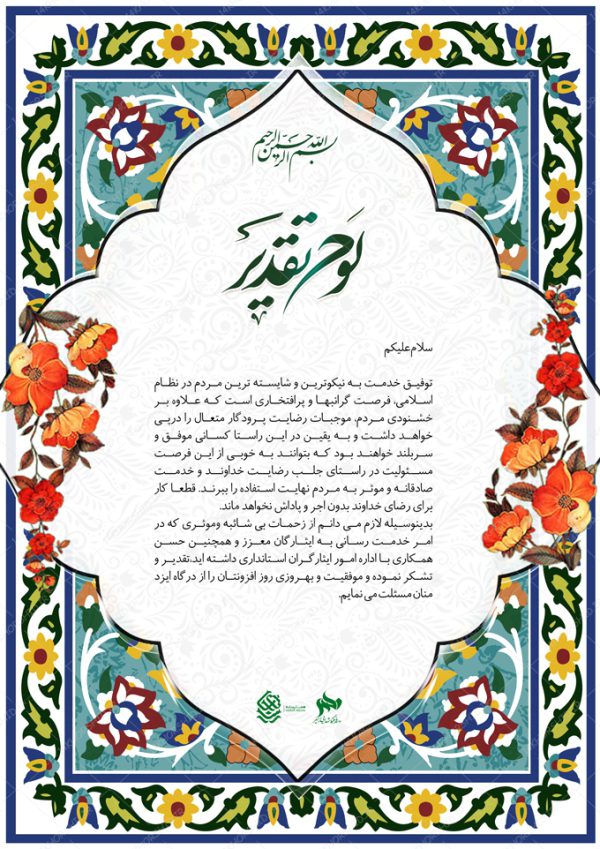 بسم الله الرحمن الرحیم
لوح تقدیر
سلام علیکم
توفیق خدمت به نیکوترین و شایسته ترین مردم در نظام
اسلامی، فرصت گرانبها و پرافتخاری است که علاوه بر
خشنودی مردم، موجبات رضایت پرودگار متعال را درپی
خواهد داشت و به یقین در این راستا کسانی موفق و
سربلند خواهند بود که بتوانند به خوبی از این فرصت
مسئولیت در راستای جلب رضایت خداوند و خدمت
صادقانه و موثر به مردم نهایت استفاده را ببرند. قطعا کار
برای رضای خداوند بدون اجر و پاداش نخواهد ماند.
بدینوسیله لازم می دانم از زحمات بی شائبه وموثری که در
امر خدمت رسانی به ایثارگان معزز و همچنین حسن
همکاری با اداره امور ایثارگران استانداری داشته اید،تقدیر و
تشکر نموده و موفقیت و بهروزی روز افزونتان را از درگاه ایزد
منان مسئلت می نمایم.